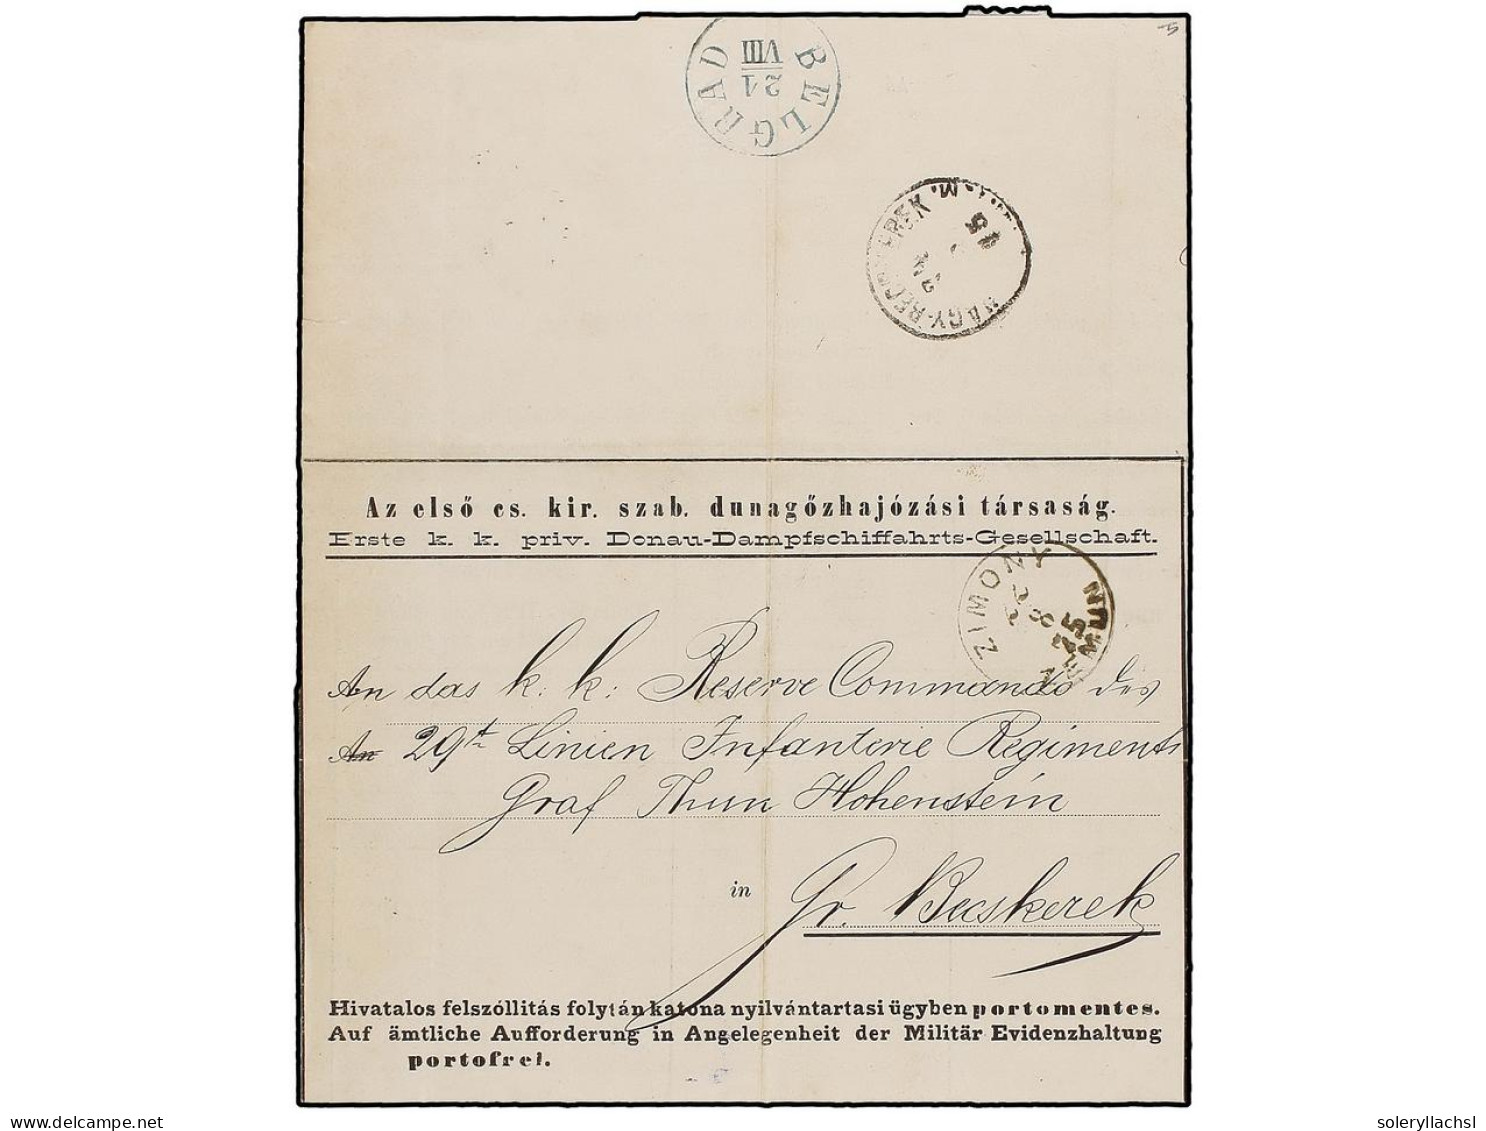 BELGRAD
21
VIII
NAGY-BECSKEREK
24
Az első cs. kir. szab. dunagőzhajózási társaság.
Erste k. k. priv. Donau-Dampfschiffahrts-Gesellschaft.
ZIMONY
SEMLIN
An das k. k. Reserve Commando des
An 29t. Linien Infanterie Regiments
Graf Thun Hohenstein
in Gr. Becskerek
Hivatalos felszóllitás folytán katona nyilvántartasi ügyben portomentes.
Auf ämtliche Aufforderung in Angelegenheit der Militär Evidenzhaltung
portofrei.
www.delcampe.net
soleryllachsl